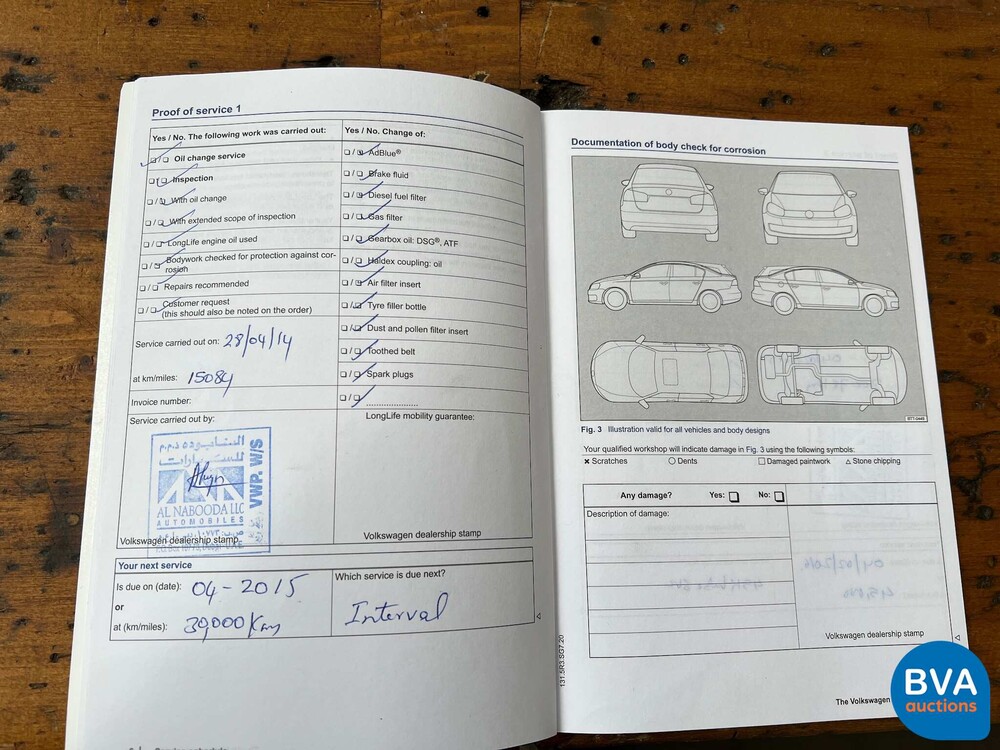 Proof of service 1
Yes / No. The following work was carried out:
Oil change service
Inspection
With oil change
With extended scope of inspection
LongLife engine oil used
Bodywork checked for protection against cor-
rosion
Repairs recommended
Customer request
(this should also be noted on the order)
Service carried out on: 28/04/14
at km/miles: 15084
Invoice number:
Service carried out by:
AL NABOODA LLC
AUTOMOBILES
VWP. W/S
Volkswagen dealership stamp
Yes / No. Change of:
AdBlue®
Brake fluid
Diesel fuel filter
Gas filter
Gearbox oil: DSG®, ATF
Haldex coupling: oil
Air filter insert
Tyre filler bottle
Dust and pollen filter insert
Toothed belt
Spark plugs
LongLife mobility guarantee:
Volkswagen dealership stamp
Your next service
Is due on (date): 04-2015
or
at (km/miles): 30,000 Km
Which service is due next?
Interval
Documentation of body check for corrosion
Fig. 3 Illustration valid for all vehicles and body designs
Your qualified workshop will indicate damage in Fig. 3 using the following symbols:
Scratches
Dents
Damaged paintwork
Stone chipping
Any damage? Yes: No:
Description of damage:
Volkswagen dealership stamp
131.5R3.SG7.20
The Volkswagen
BVA
auctions